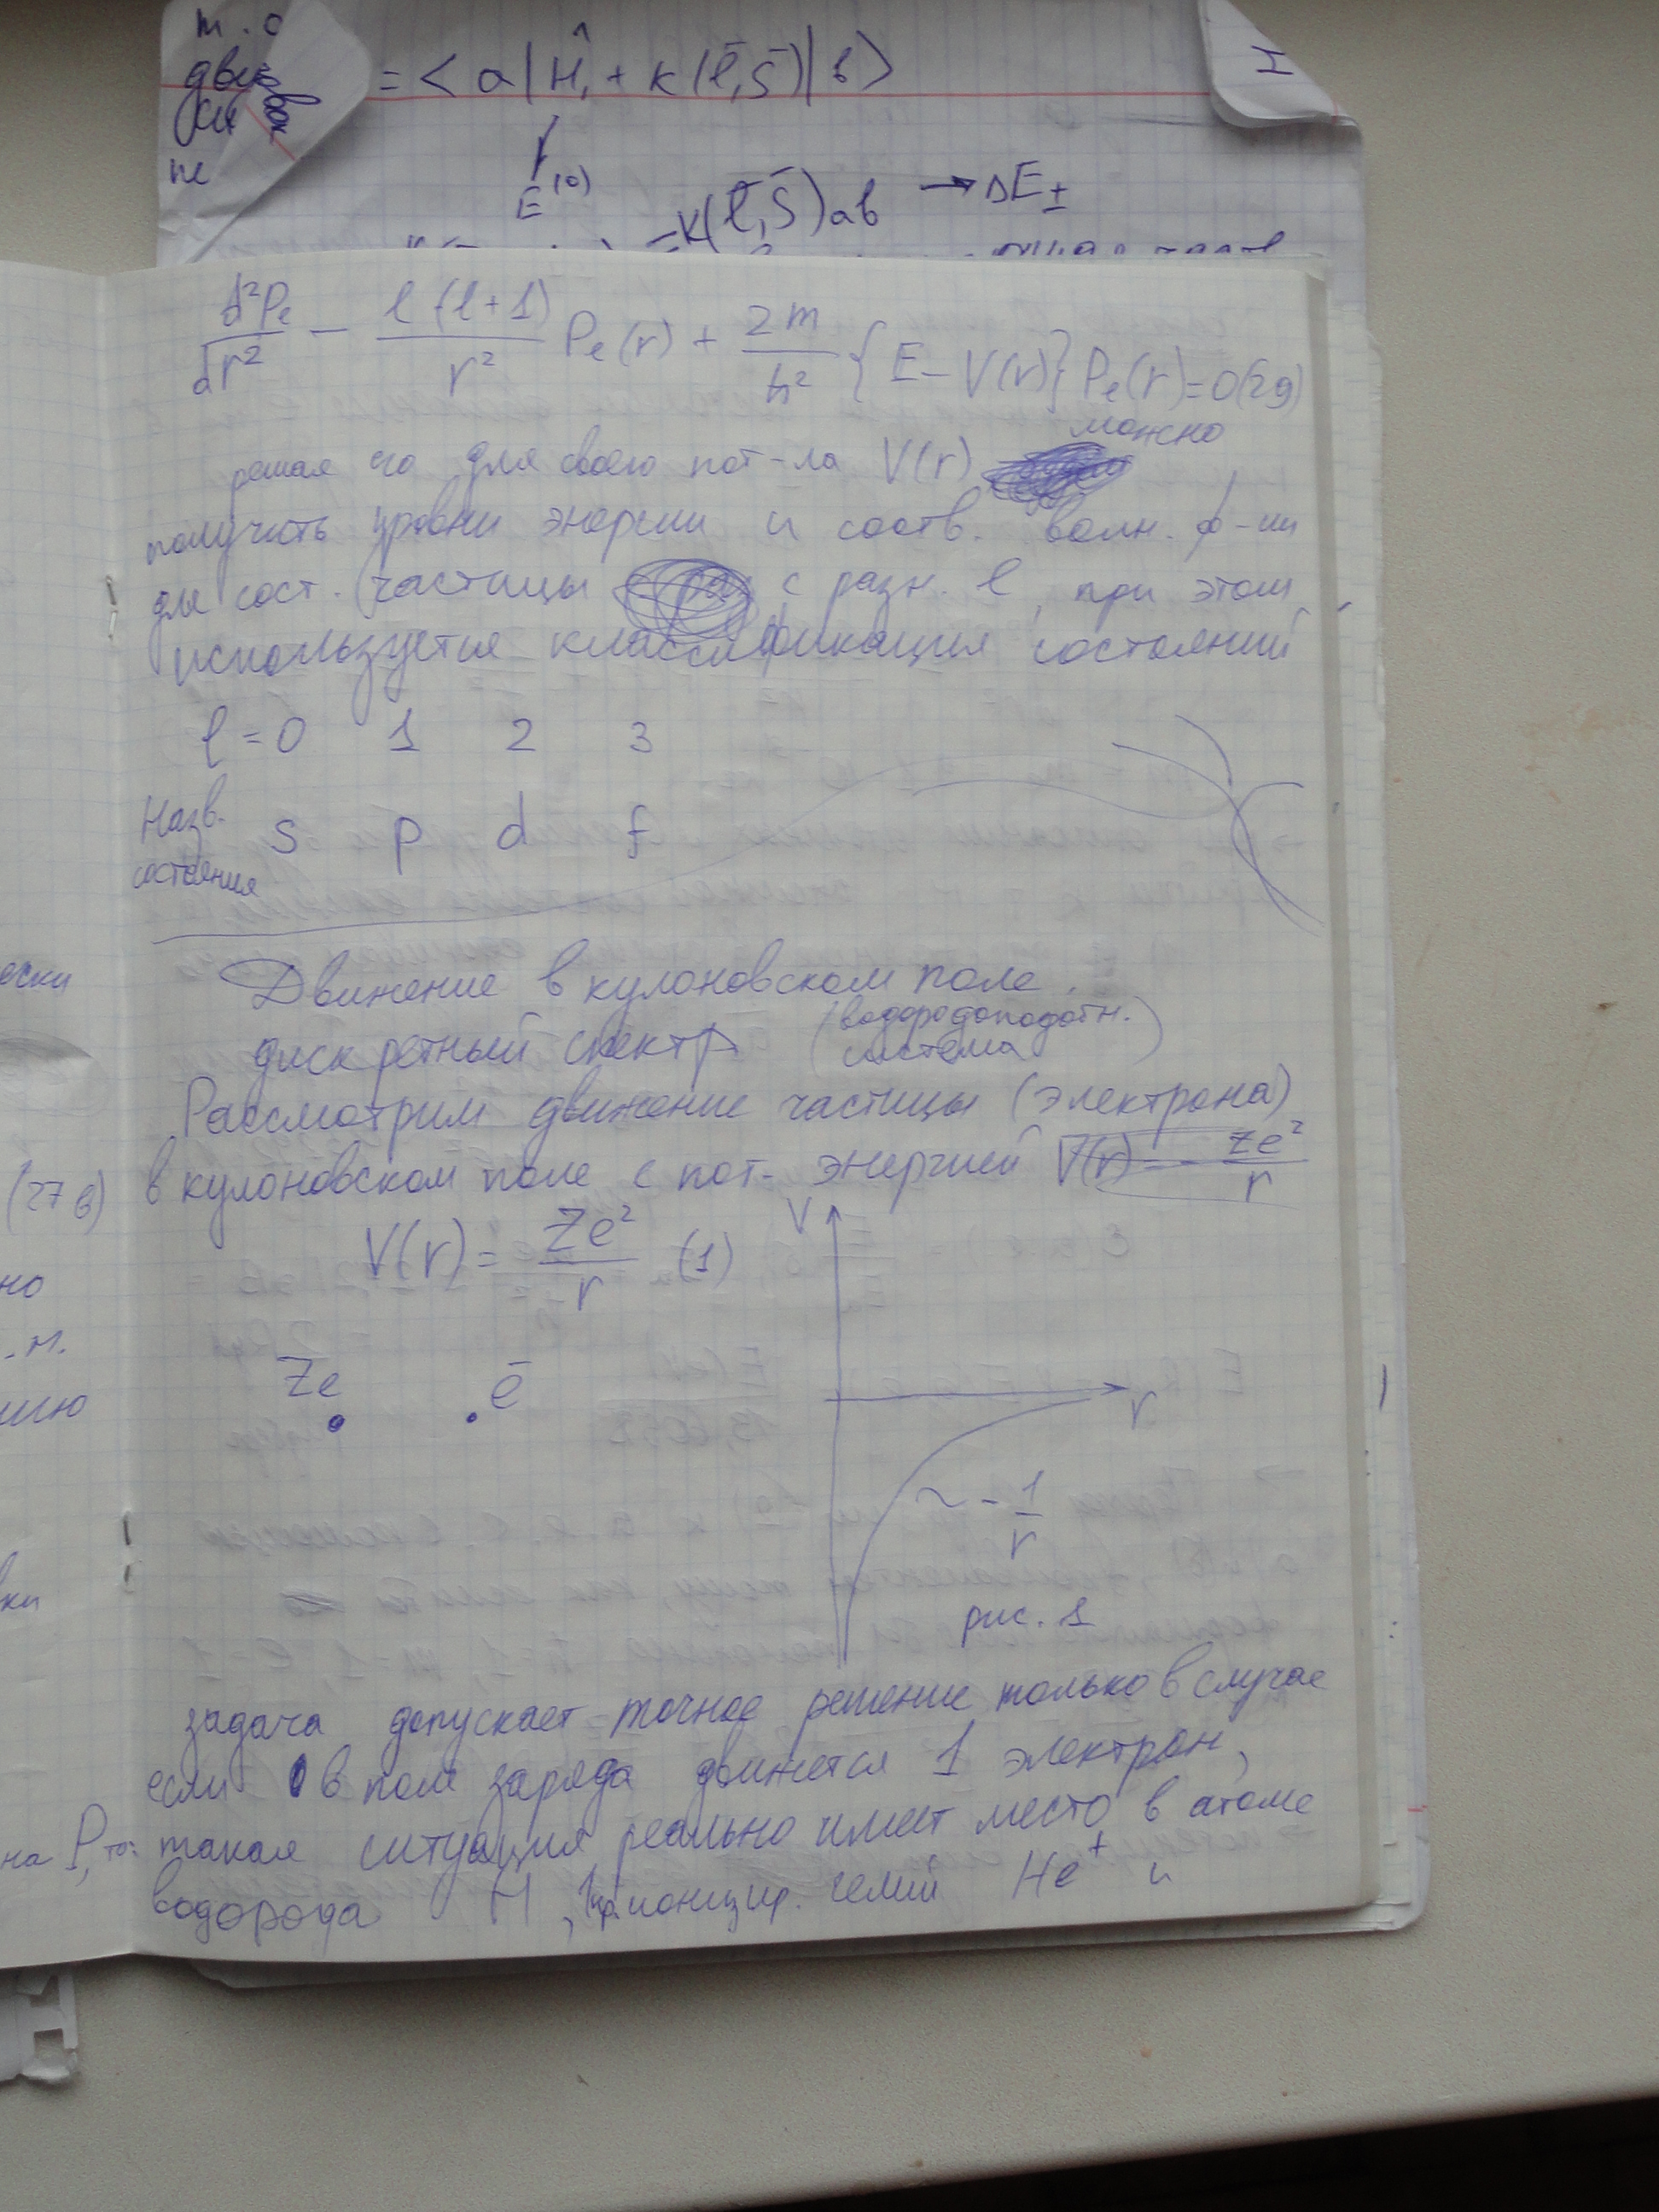 т. о
дву
си
не
= < a | Ĥ₁ + к(l̄, s̄) | b >
E⁽⁰⁾
= к(l̄, s̄)ab → ΔE±
d²Pe/dr² − l(l+1)/r² Pe(r) + 2m/ħ² {E − V(r)} Pe(r) = 0 (29)
решая его для своего пот-ла V(r) можно
получить уровни энергии и соотв. волн. ф-ии
для сост. частицы с разн. l, при этом
используется классификация состояний
l = 0 1 2 3
Назв. состояния s p d f
Движение в кулоновском поле.
дискретный спектр (водородоподобн. система)
Рассмотрим движение частицы (электрона)
в кулоновском поле с пот- энергией V(r) = - Ze²/r
V(r) = Ze²/r (1)
V
Ze ē
r
~ - 1/r
рис. 1
задача допускает точное решение только в случае
если в поле заряда движется 1 электрон,
такая ситуация реально имеет место в атоме
водорода H, ионизир. гелий He⁺ и
ески
(27 в)
но
. м.
вки
на P, то: